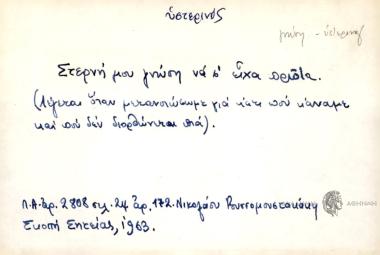 ὑστερινός
γνώση - ὑστερινός
Στερνή μου γνώση νά σ' εἶχα πρῶτα.
(Λέγεται ὅταν μετανοιώσωμε γιά κάτι πού κάναμε
καί πού δέν διορθώνεται πιά).
Λ.Α. ἀρ. 2808 σελ. 24 ἀρ. 172. Νικολάου Ρουσσομουστακάκη
Σκοπή Σητείας, 1963.
ΑΚΑΔΗΜΙΑ